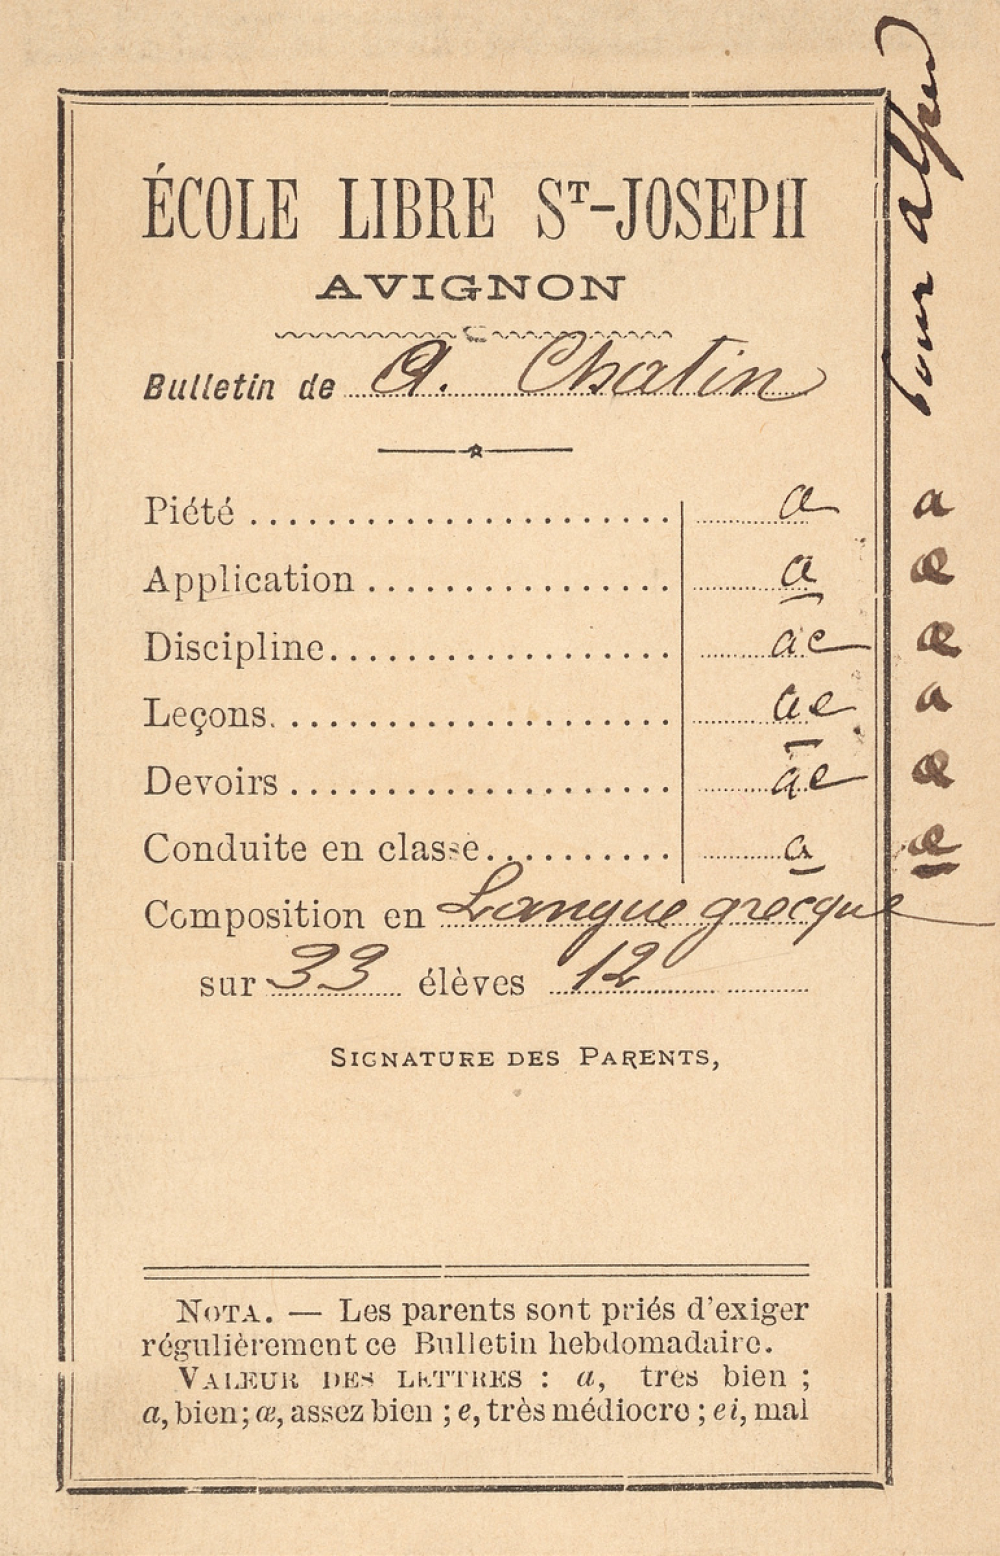 ÉCOLE LIBRE ST-JOSEPH
AVIGNON
Bulletin de A. Chatin
Piété a
Application a
Discipline ae
Leçons ae
Devoirs ae
Conduite en classe a
Composition en Langue grecque
sur 33 élèves 12
SIGNATURE DES PARENTS,
NOTA. — Les parents sont priés d'exiger
régulièrement ce Bulletin hebdomadaire.
VALEUR DES LETTRES : a, tres bien ;
a, bien; æ, assez bien ; e, très médiocre ; ei, mal
pour alfred
a
æ
æ
a
æ
æ